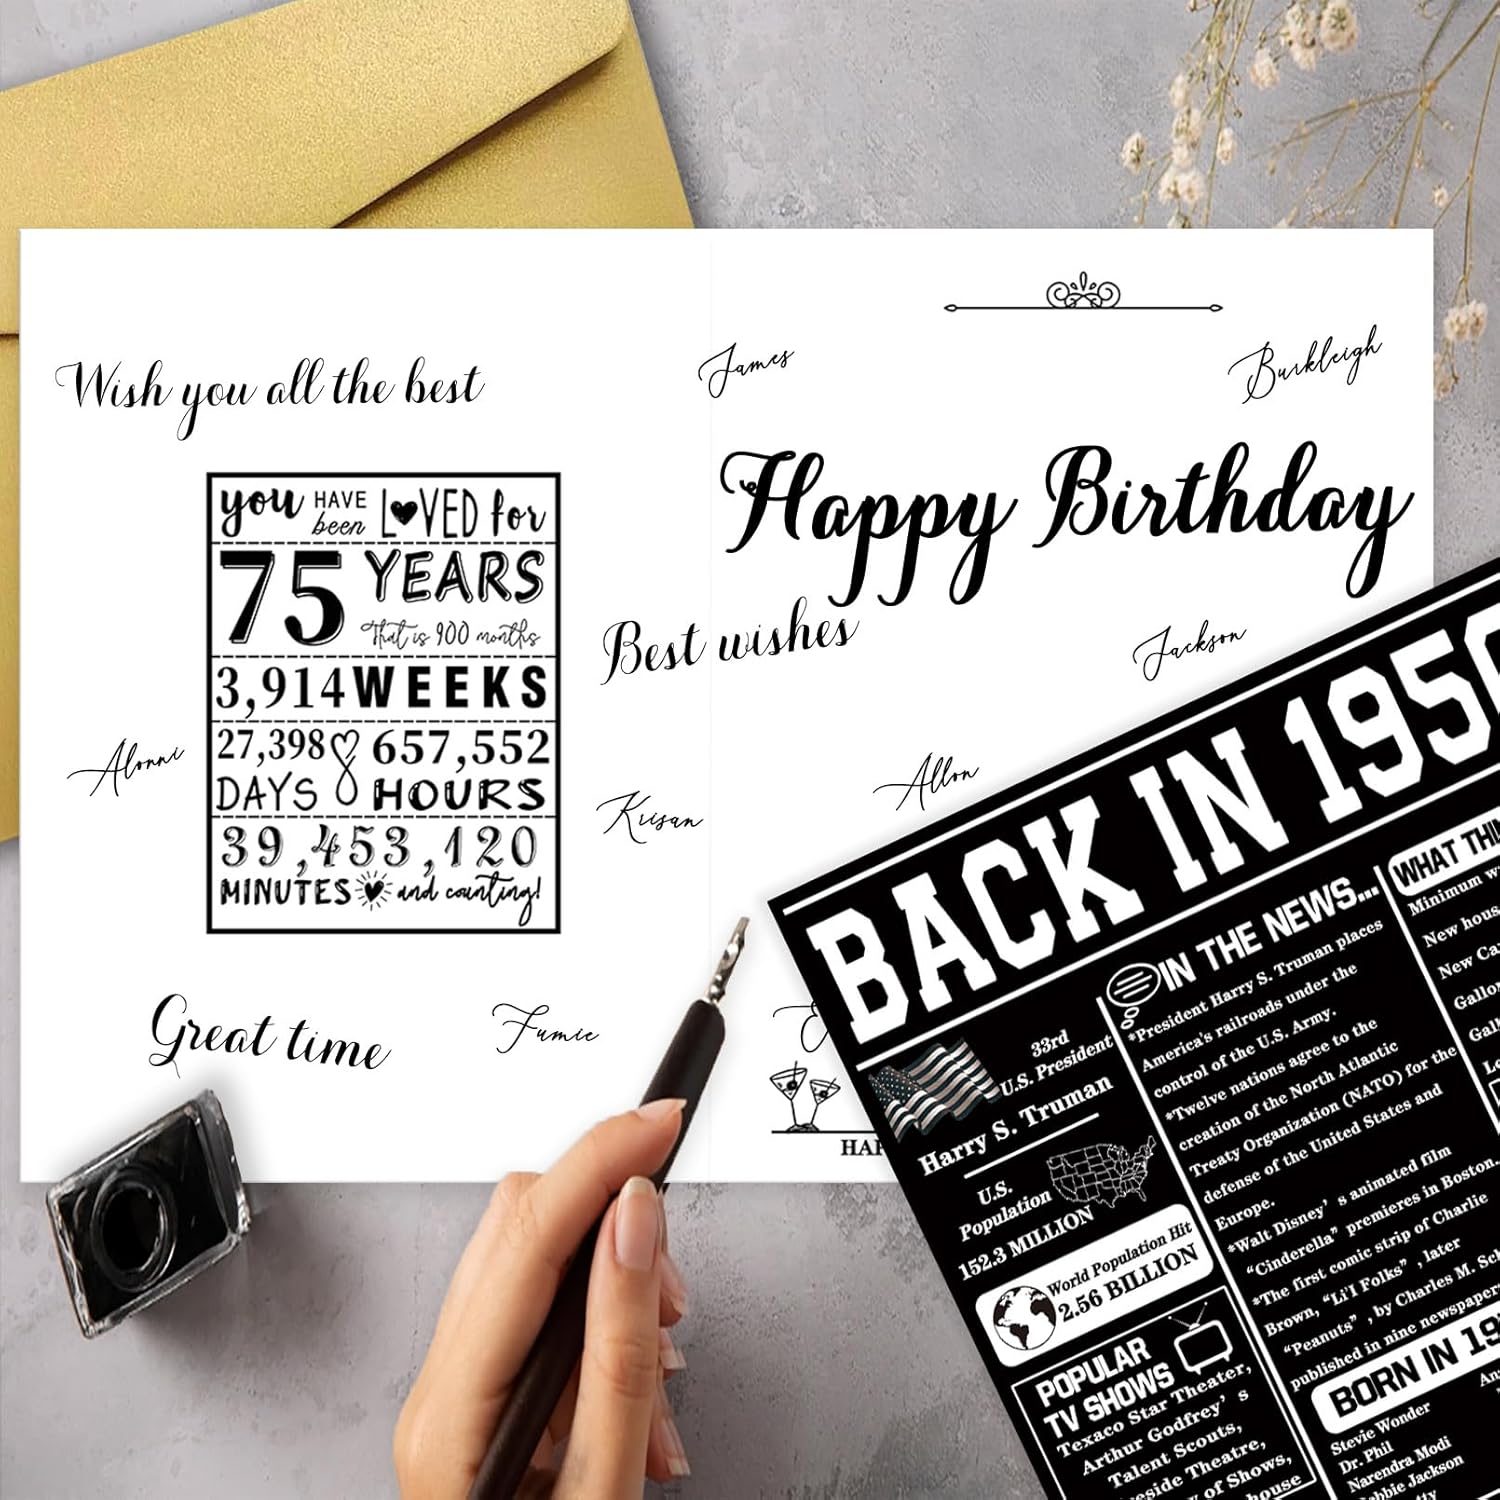 Wish you all the best
James
Burkleigh
Happy Birthday
you HAVE been LOVED for
75 YEARS
That is 900 months
3,914 WEEKS
27,398 DAYS
657,552 HOURS
39,453,120
MINUTES and counting!
Best wishes
Jackson
Alonni
Krisan
Allon
Great time
Fumie
BACK IN 1950
33rd
U.S. President
Harry S. Truman
U.S.
Population
152.3 MILLION
World Population Hit
2.56 BILLION
POPULAR
TV SHOWS
Texaco Star Theater,
Arthur Godfrey's
Talent Scouts,
Theatre,
of Shows,
IN THE NEWS...
*President Harry S. Truman places
America's railroads under the
control of the U.S. Army.
*Twelve nations agree to the
creation of the North Atlantic
Treaty Organization (NATO) for the
defense of the United States and
Europe.
*Walt Disney's animated film
"Cinderella" premieres in Boston.
*The first comic strip of Charlie
Brown, "Li'l Folks", later
"Peanuts", by Charles M.
published in nine newspapers
WHAT
Minimum
New
New
BORN IN
Stevie Wonder
Dr. Phil
Narendra Modi
Jackson